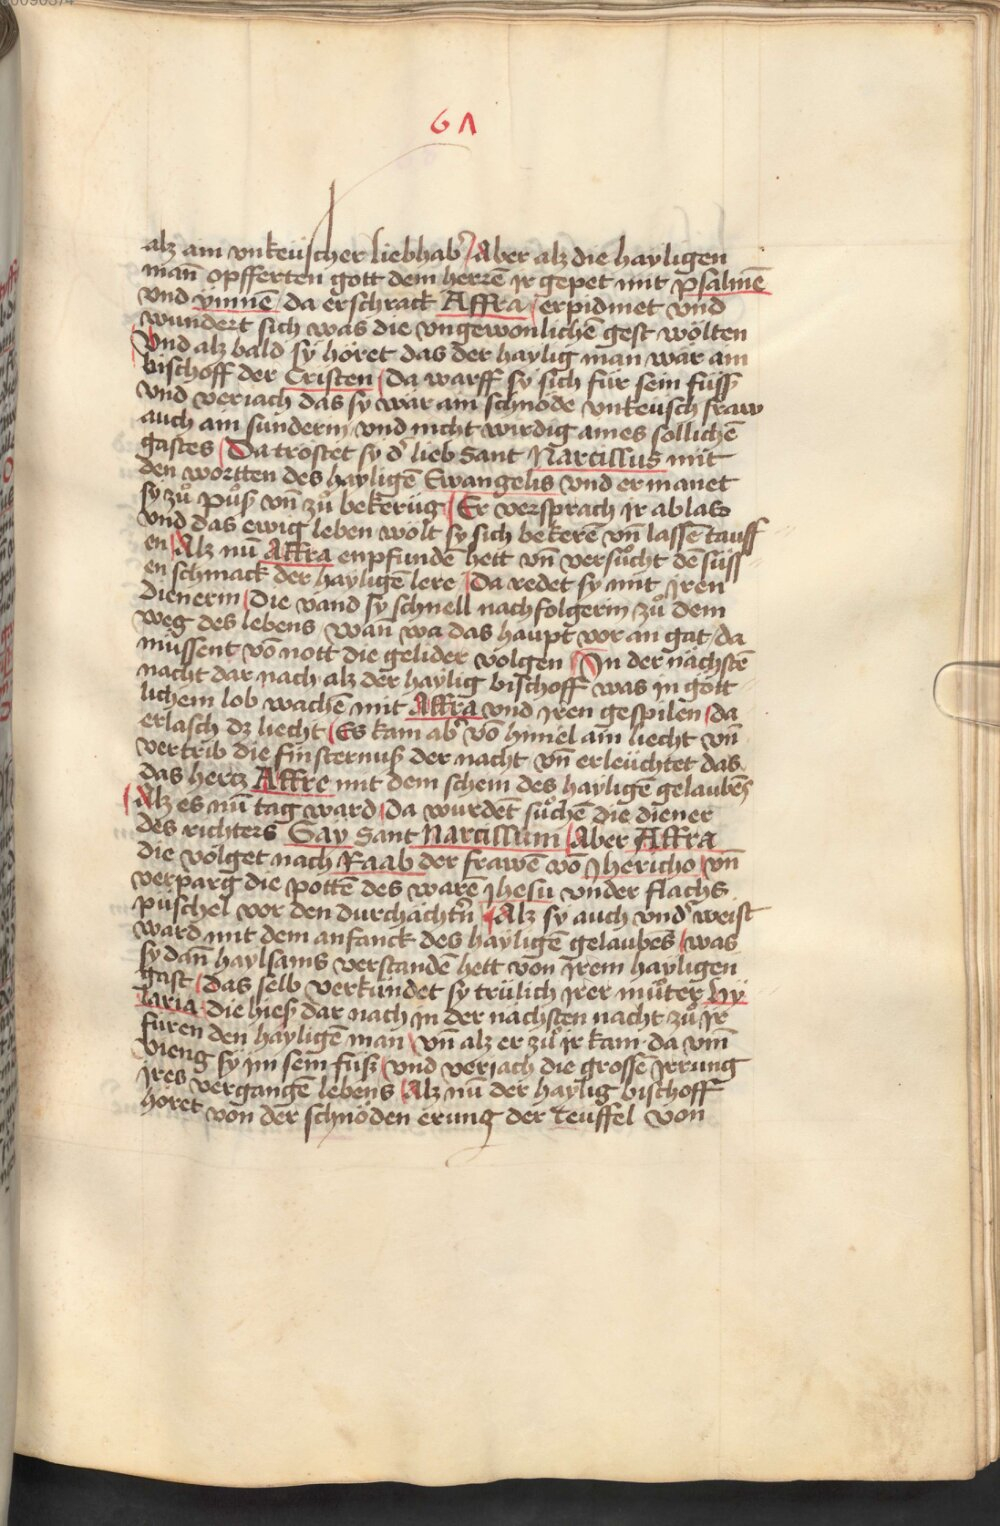 61
alz ain vnkeüscher liebhab᷑ Aber alz die hayligen
man̄ opfferten gott dem herrē jr gepet mit psalmē
vnd ymnē da erschrack Affra erpidmet vnd
wundert sich was die vngewonlichē gest wölten
Vnd alz bald sy höret das der haylig man wär ain
bischoff der Cristen da warff sy sich für sein füsß
vnd veriach das sy wär ain schnöde vnkeusch fraw
auch ain sünderin vnd nicht wirdig aines sollichē
gastes Da tröstet sy d᷑ lieb Sant Narcissus mit
den wortten des hayligē Ewangelis vnd ermanet
sy zů půß vn̄ zů bekerūg Er versprach jr ablas
vnd das ewig leben wölt sy sich bekerē vn̄ lassē tauff
en Alz nū Affra enpfundē hett vn̄ versůcht dē süss
en schmack der hayligē lere Da redet sy mit jren
dienerin Die vand sy schnell nachfolgerin zů dem
weg des lebens wan̄ wa das haupt vor an gat da
müssent vō nott die gelider volgen In der nächstē
nacht dar nach alz der haylig bischoff was in gött
lichem lob wachē mit Affra vnd jren gespilen da
erlasch dz liecht Es kam ab᷑ vō himel ain liecht vn̄
vertrib die finsternuß der nacht vn̄ erleüchtet das
das hertz Affre mit dem schein des hayligē gelaubēs
Alz es nū tag ward Da wurdēt sůchē die diener
des richters Gay Sant Narcissum Aber Affra
die völget nach Raab der frawē vō Jhericho vn̄
verparg die pottē des warē Jhesu vnder flachs
püschel vor den durchächt᷑n Alz sy auch vnd᷑weist
ward mit dem anfanck des hayligē gelaubes was
sy dan̄ haylsams verstandē hett von jrem hayligen
gast das selb verkündet sy trülich jrer můter Hy
laria die hieß dar nach in der nächsten nacht zů jr
füren den hayligē man vn̄ alz er zů jr kam da vm̄
vieng sy im sein füß vnd veriach die grosse jrrung
jres vergangē lebens Alz nū der haylig bischoff
höret von der schnöden erung der teuffel von